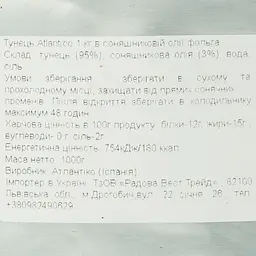 Тунець Atlantico 1 кг в соняшниковій олії фольга
Склад: тунець (95%), соняшникова олія (3%), вода,
сіль
Умови зберігання : зберігати в сухому та
прохолодному місці, захищати від прямих сонячних
променів. Після відкриття зберігати в холодильнику
максимум 48 годин.
Харчова цінність в 100г продукту: білки-12г, жири-15г,
вуглеводи- 0 г, сіль-2г.
Енергетична цінність: 754кДж/180 ккал
Маса нетто: 1000г
Виробник: Атлантіко (Іспанія)
Імпортер в Україні: ТзОВ «Радова Вест Трейд», 82100
Львівська обл., м.Дрогобич,вул. 22 січня 26, тел.
+380982490829